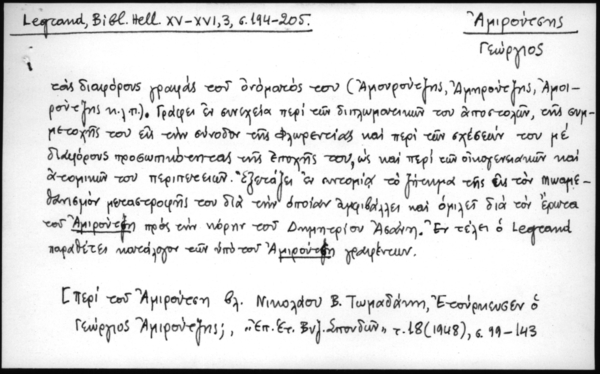 Legrand, Bibl. Hell. XV-XVI, 3, σ. 194-205.
Ἀμιρούτσης
Γεώργιος
τὰς διαφόρους γραφὰς τοῦ ὀνόματός του (Ἀμουρούτζης, Ἀμηρούτζης, Ἀμοι-
ρούτζης κ.λ.π.). Γράφει ἐν συνεχείᾳ περὶ τῶν διπλωματικῶν του ἀποστολῶν, τῆς συμ-
μετοχῆς του εἰς τὴν σύνοδον τῆς Φλωρεντίας καὶ περὶ τῶν σχέσεών του μὲ
διαφόρους προσωπικότητας τῆς ἐποχῆς του, ὡς καὶ περὶ τῶν οἰκογενειακῶν καὶ
ἀτομικῶν του περιπετειῶν. Ἐξετάζει ἐν συντομίᾳ τὸ ζήτημα τῆς εἰς τὸν Μωαμε-
θανισμὸν μεταστροφῆς του διὰ τὴν ὁποίαν ἀμφιβάλλει καὶ ὁμιλεῖ διὰ τὸν ἔρωτα
τοῦ Ἀμιρούτση πρὸς τὴν κόρην τοῦ Δημητρίου Ἀσάνη. Ἐν τέλει ὁ Legrand
παραθέτει κατάλογον τῶν ὑπὸ τοῦ Ἀμιρούτση γραφέντων.
[Περὶ τοῦ Ἀμιρούτση βλ. Νικολάου Β. Τωμαδάκη, Ἐτούρκευσεν ὁ
Γεώργιος Ἀμιρούτζης;, "Ἐπ. Ἑτ. Βυζ. Σπουδῶν" τ. 18 (1948), σ. 99-143